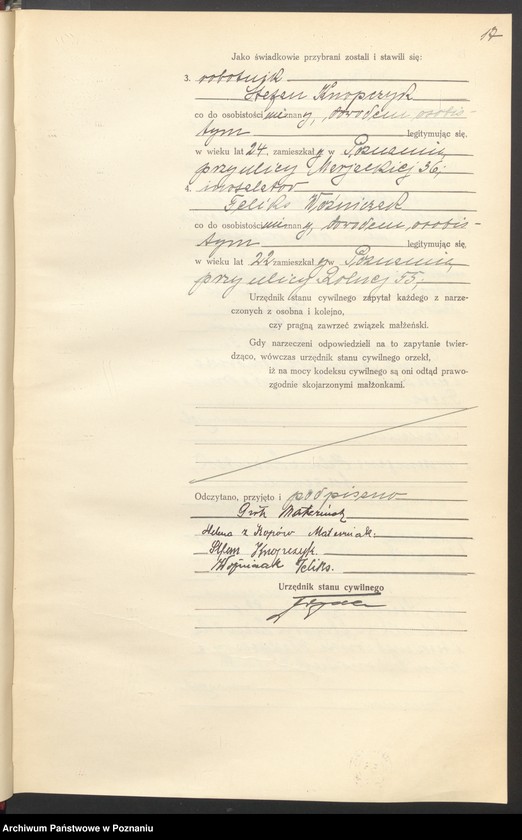 17
Jako świadkowie przybrani zostali i stawili się:
3. robotnik
Stefan Knopczyk
co do osobistości nieznany, dowodem osobis-
tym legitymując się,
w wieku lat 24, zamieszkały w Poznaniu
przy ulicy Marjackiej 36,
4.
Feliks Woźniczak
co do osobistości nieznany, dowodem osobis-
tym legitymując się,
w wieku lat 22 zamieszkały w Poznaniu,
przy ulicy Rolnej 55,
Urzędnik stanu cywilnego zapytał każdego z narze-
czonych z osobna i kolejno,
czy pragną zawrzeć związek małżeński.
Gdy narzeczeni odpowiedzieli na to zapytanie twier-
dząco, wówczas urzędnik stanu cywilnego orzekł,
iż na mocy kodeksu cywilnego są oni odtąd prawo-
zgodnie skojarzonymi małżonkami.
Odczytano, przyjęto i podpisano
z
Stefan Knopczyk.
Feliks.
Urzędnik stanu cywilnego
Archiwum Państwowe w Poznaniu